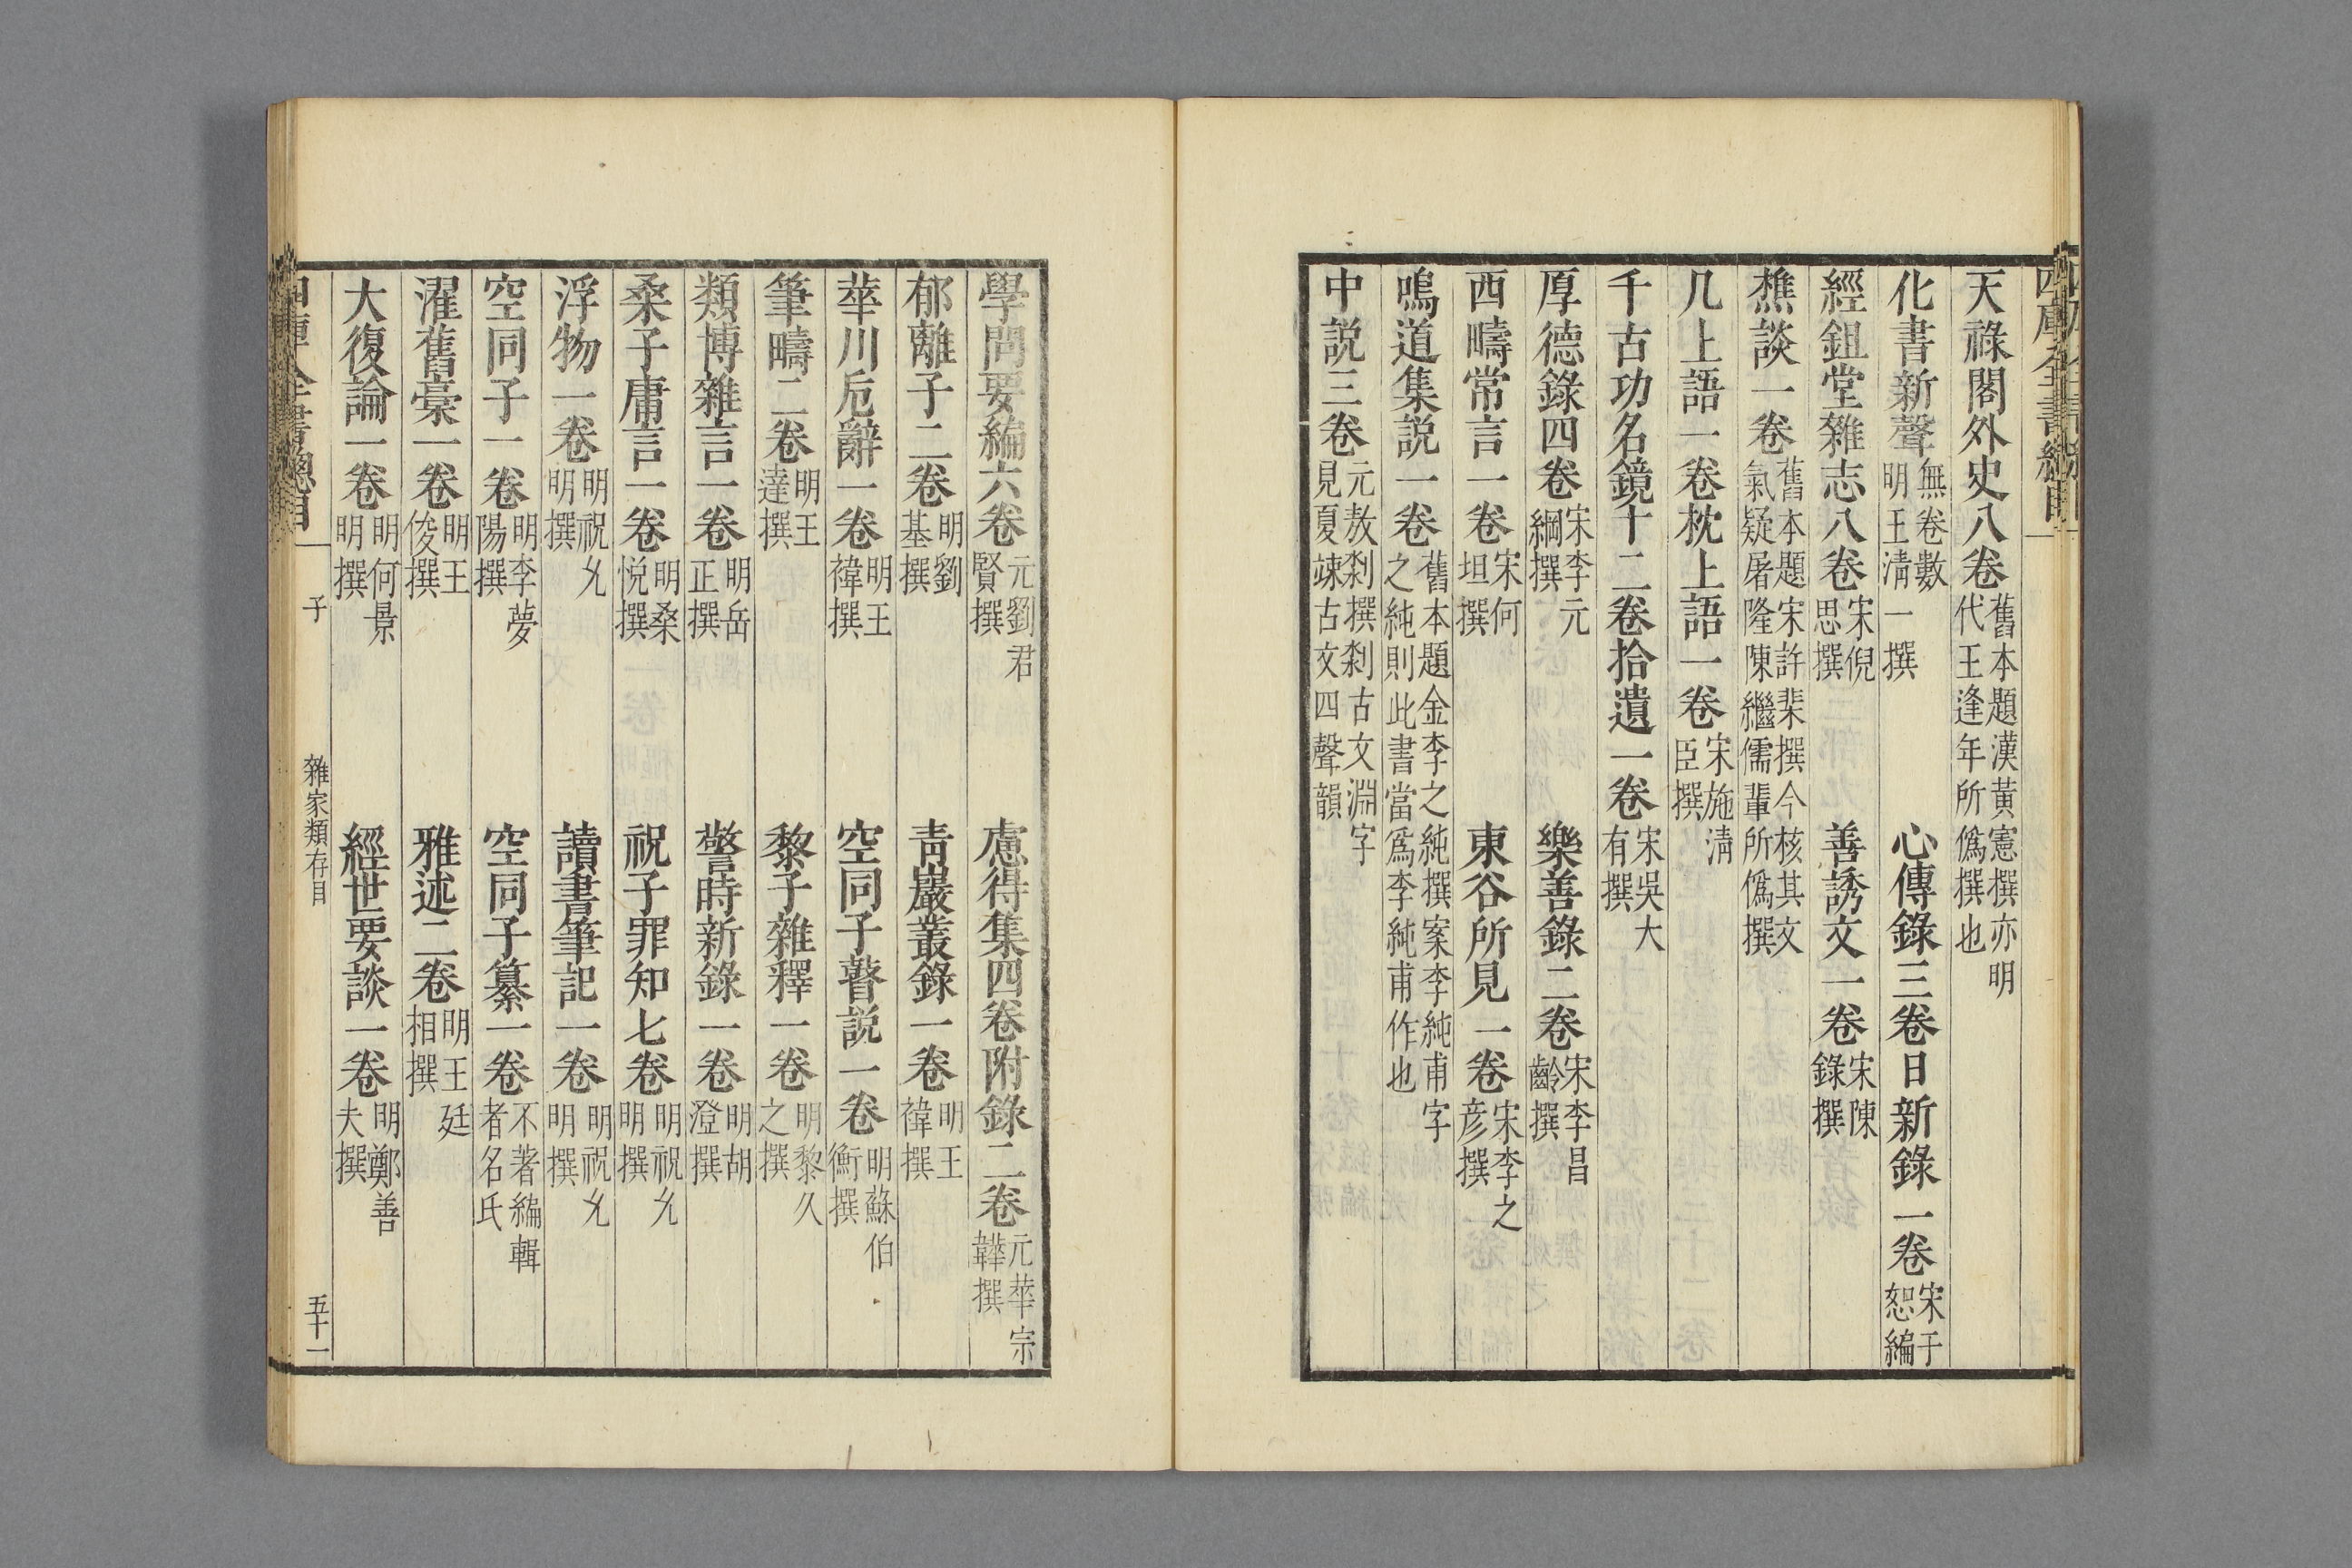 四庫全書總目
天祿閣外史八卷舊本題漢黃憲撰亦明代王逢年所僞撰也
化書新聲無卷數明王淸一撰 心傳錄三卷日新錄一卷宋于恕編
經鉏堂雜志八卷宋倪思撰 善誘文一卷宋陳錄撰
樵談一卷舊本題宋許棐撰今核其文氣疑屠隆陳繼儒輩所僞撰
几上語一卷枕上語一卷宋施淸臣撰
千古功名鏡十二卷拾遺一卷宋吳大有撰
厚德錄四卷宋李元綱撰 樂善錄二卷宋李昌齡撰
西疇常言一卷宋何坦撰 東谷所見一卷宋李之彥撰
鳴道集説一卷舊本題金李之純撰案李純甫字之純則此書當爲李純甫作也
中説三卷元敖刹撰刹古文淵字見夏竦古文四聲韻
學問要編六卷元劉君賢撰 慮得集四卷附錄二卷元華宗韡撰
郁離子二卷明劉基撰 靑巖叢錄一卷明王禕撰
華川卮辭一卷明王禕撰 空同子瞽説一卷明蘇伯衡撰
筆疇二卷明王達撰 黎子雜釋一卷明黎久之撰
類博雜言一卷明岳正撰 警時新錄一卷明胡澄撰
桑子庸言一卷明桑悅撰 祝子罪知七卷明祝允明撰
浮物一卷明祝允明撰 讀書筆記一卷明祝允明撰
空同子一卷明李夢陽撰 空同子纂一卷不著編輯者名氏
濯舊稾一卷明王俊撰 雅述二卷明王廷相撰
大復論一卷明何景明撰 經世要談一卷明鄭善夫撰
四庫全書總目 子 雜家類存目 五十一